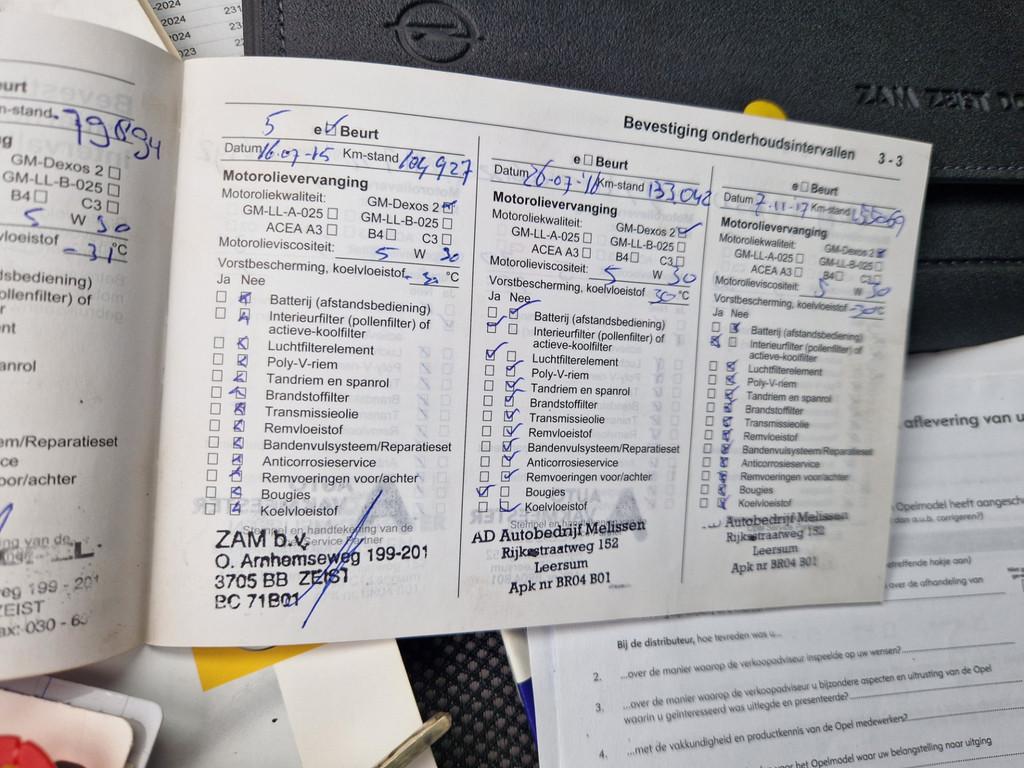 -2024
2024
023
231
ZAM ZEIST
eurt
m-stand. 79894
g
GM-Dexos 2 □
GM-LL-B-025 □
B4 □ C3 □
5 W 30
vloeistof -31 °C
dsbediening)
ollenfilter) of
r
ent
panrol
em/Reparatieset
ice
oor/achter
ing van de
eg 199 - 201
ZEIST
ax: 030 - 6
Bevestiging onderhoudsintervallen 3 - 3
5 e ☑ Beurt
Datum 16-07-15 Km-stand 104927
Motorolievervanging
Motoroliekwaliteit: GM-Dexos 2 ☑
GM-LL-A-025 □ GM-LL-B-025 □
ACEA A3 □ B4 □ C3 □
Motorolieviscositeit: 5 W 30
Vorstbescherming, koelvloeistof - 30 °C
Ja Nee
□ ☑ Batterij (afstandsbediening)
□ ☑ Interieurfilter (pollenfilter) of
actieve-koolfilter
□ ☑ Luchtfilterelement
□ ☑ Poly-V-riem
□ ☑ Tandriem en spanrol
□ ☑ Brandstoffilter
□ ☑ Transmissieolie
□ ☑ Remvloeistof
□ ☑ Bandenvulsysteem/Reparatieset
□ ☑ Anticorrosieservice
□ ☑ Remvoeringen voor/achter
□ ☑ Bougies
□ ☑ Koelvloeistof
Stempel en handtekening van de
Service Partner
ZAM b.v.
O. Arnhemseweg 199-201
3705 BB ZEIST
BC 71B01
e □ Beurt
Datum 26-07-16 Km-stand 133042
Motorolievervanging
Motoroliekwaliteit: GM-Dexos 2 ☑
GM-LL-A-025 □ GM-LL-B-025 □
ACEA A3 □ B4 □ C3 □
Motorolieviscositeit: 5 W 30
Vorstbescherming, koelvloeistof 30 °C
Ja Nee
□ ☑ Batterij (afstandsbediening)
☑ □ Interieurfilter (pollenfilter) of
actieve-koolfilter
☑ □ Luchtfilterelement
□ ☑ Poly-V-riem
□ ☑ Tandriem en spanrol
□ ☑ Brandstoffilter
□ ☑ Transmissieolie
□ ☑ Remvloeistof
□ ☑ Bandenvulsysteem/Reparatieset
□ ☑ Anticorrosieservice
□ ☑ Remvoeringen voor/achter
☑ □ Bougies
□ ☑ Koelvloeistof
AD Autobedrijf Melissen
Rijksstraatweg 152
Leersum
Apk nr BR04 B01
e □ Beurt
Datum 7-11-17 Km-stand 155069
Motorolievervanging
Motoroliekwaliteit: GM-Dexos 2 ☑
GM-LL-A-025 □ GM-LL-B-025 □
ACEA A3 □ B4 □ C3 □
Motorolieviscositeit: 5 W 30
Vorstbescherming, koelvloeistof -30 °C
Ja Nee
□ ☑ Batterij (afstandsbediening)
☑ □ Interieurfilter (pollenfilter) of
actieve-koolfilter
□ ☑ Luchtfilterelement
□ ☑ Poly-V-riem
□ ☑ Tandriem en spanrol
□ ☑ Brandstoffilter
□ ☑ Transmissieolie
□ ☑ Remvloeistof
□ ☑ Bandenvulsysteem/Reparatieset
□ ☑ Anticorrosieservice
□ ☑ Remvoeringen voor/achter
□ ☑ Bougies
□ ☑ Koelvloeistof
Autobedrijf Melissen
Rijksstraatweg 152
Leersum
Apk nr BR04 B01
aflevering van u
Opelmodel heeft aangesch
an a.u.b. corrigeren?)
etreffende hokje aan)
over de afhandeling van
Bij de distributeur, hoe tevreden was u...
2. ...over de manier waarop de verkoopadviseur inspeelde op uw wensen?
3. ...over de manier waarop de verkoopadviseur u bijzondere aspecten en uitrusting van de Opel
waarin u geïnteresseerd was uitlegde en presenteerde?
4. ...met de vakkundigheid en productkennis van de Opel medewerkers?
voor het Opelmodel waar uw belangstelling naar uitging